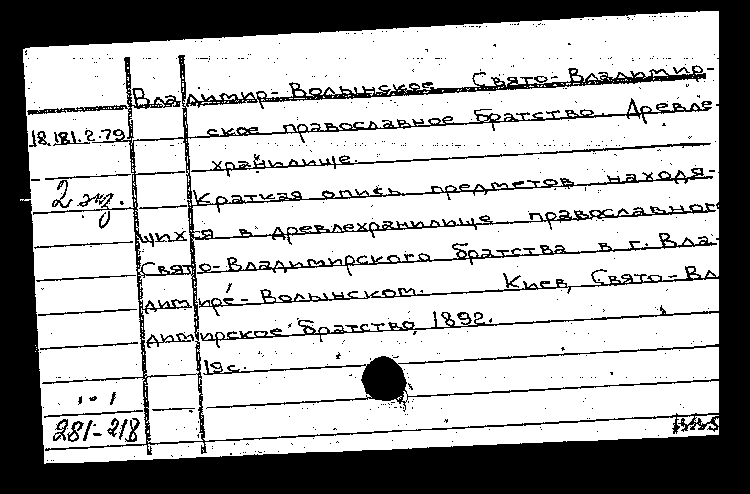 Владимир-Волынское Свято-Владимир-
18.181.2.79. ское православное братство. Древле-
хранилище.
2 экз. Краткая опись предметов, находя-
щихся в древлехранилище православног
Свято-Владимирского братства в г. Вла-
димире-Волынском. Киев, Свято-Вл
димирское братство, 1892.
19 с.
281-218